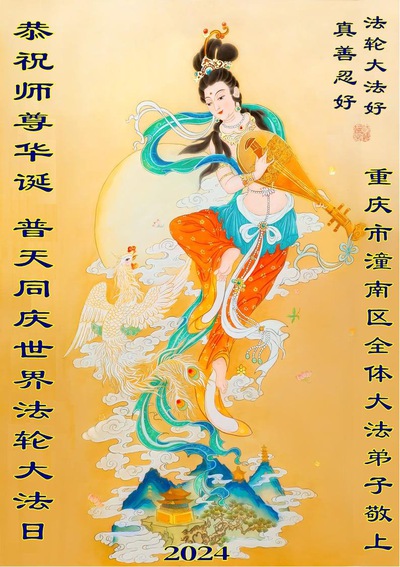 法轮大法好
真善忍好
恭祝师尊华诞 普天同庆世界法轮大法日
重庆市潼南区全体大法弟子敬上
2024